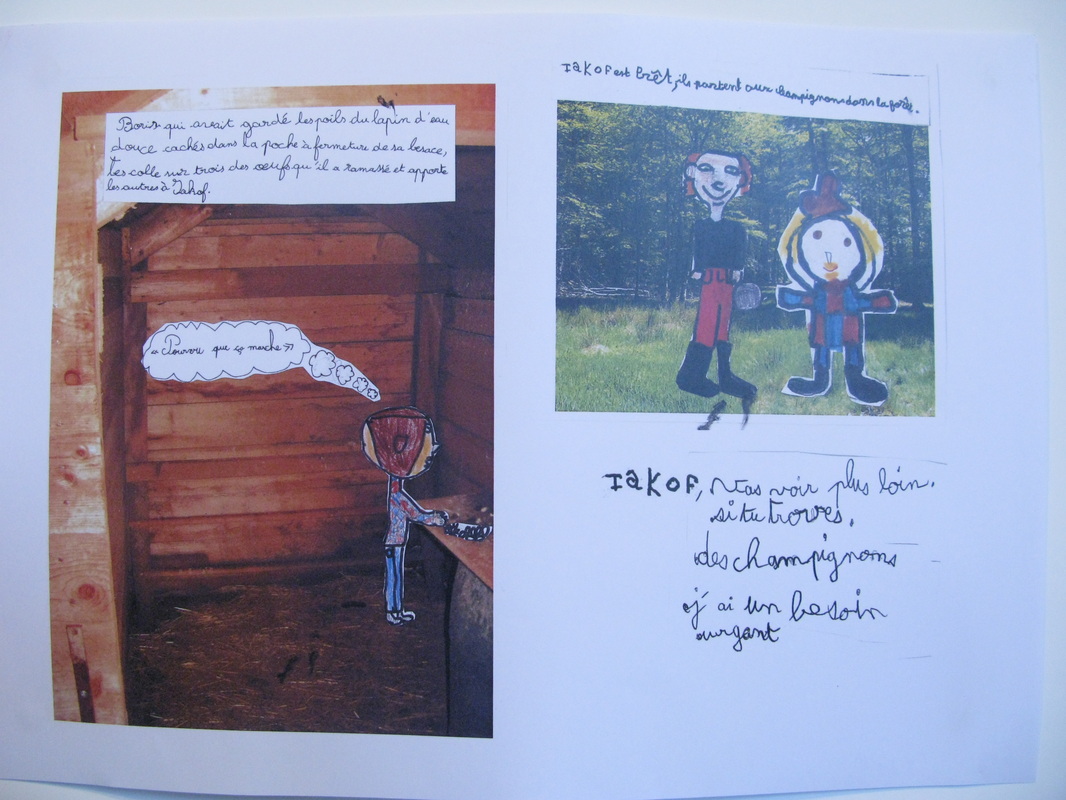 Boris qui avait gardé les poils du lapin d'eau
douce cachés dans la poche à fermeture de sa besace,
les colle sur trois des oeufs qu'il a ramassé et apporte
les autres à Iakof.
« Pourvu que ça marche »
Iakof est prêt, ils partent aux champignons dans la forêt.
Iakof, vas voir plus loin.
si tu troves,
des champignons
j'ai un besoin
ourgant